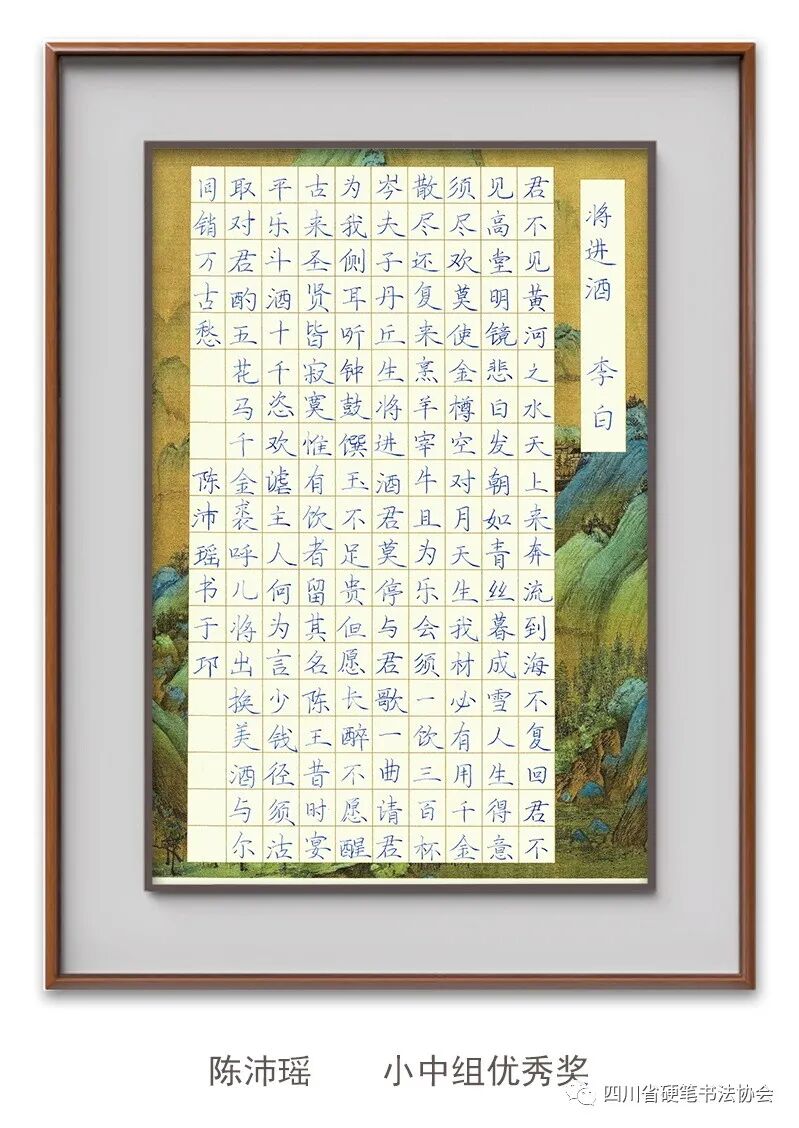 将进酒 李白
君不见黄河之水天上来奔流到海不复回君不
见高堂明镜悲白发朝如青丝暮成雪人生得意
须尽欢莫使金樽空对月天生我材必有用千金
散尽还复来烹羊宰牛且为乐会须一饮三百杯
岑夫子丹丘生将进酒君莫停与君歌一曲请君
为我侧耳听钟鼓馔玉不足贵但愿长醉不愿醒
古来圣贤皆寂寞惟有饮者留其名陈王昔时宴
平乐斗酒十千恣欢谑主人何为言少钱径须沽
取对君酌五花马千金裘呼儿将出换美酒与尔
同销万古愁 陈沛瑶书于邛
陈沛瑶 小中组优秀奖
四川省硬笔书法协会